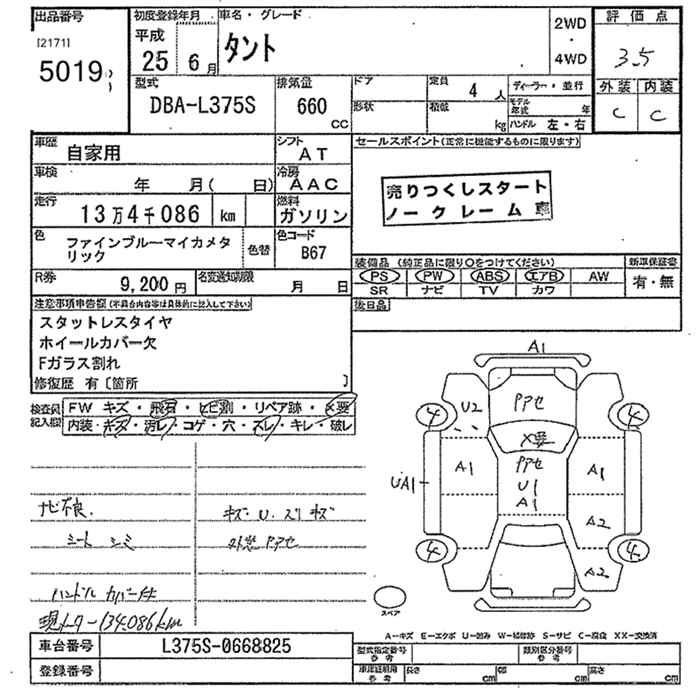 出品番号 初度登録年月 車名・グレード 評価点
[2171] 平成 2WD
5019 25 年 6 月 タント ・ 3.5
4WD
型式 排気量 ドア 定員 4 人 ディーラー・並行 外装 内装
DBA-L375S 660 CC 形状 積載 kg モデル年式 年 C C
ハンドル 左・右
車歴 自家用 シフト AT セールスポイント(正常に機能するものに限ります)
車検 年 月( 日) 冷房 AAC
売りつくしスタート
ノークレーム 車
走行 13万4千086 km 燃料 ガソリン
色 ファインブルーマイカメタリック 色替 色コード B67
装備品 (純正品に限り○をつけてください) 新車保証書
PS PW ABS エアB AW 有・無
SR ナビ TV カワ
R券 9,200円 名変通知期限 月 日
注意事項申告欄(不具合内容等は具体的に記入して下さい) 後日品
スタットレスタイヤ
ホイールカバー欠
Fガラス割れ
修復歴 有〔箇所 〕
検査員記入欄 FW キズ・飛石・ヒビ割・リペア跡・×要
内装・キズ・汚レ・コゲ・穴・スレ・キレ・破レ
A1
4 U2 Pアセ 4
×要
A1 Pアセ A1
UA1 U1
A1 A2
4 4
A2
スペア
ナビ不良. キズ U. スリ キズ
シート シミ 外窓 Pアセ
ハンドル カバー付
現メーター134.086km
A-キズ E-エクボ U-凹み W-補修跡 S-サビ C-腐食 XX-交換済
車台番号 L375S-0668825 型式指定番号 参考 類別区分番号 参考
登録番号 車庫証明用 参考 長さ cm 幅 cm 高さ cm